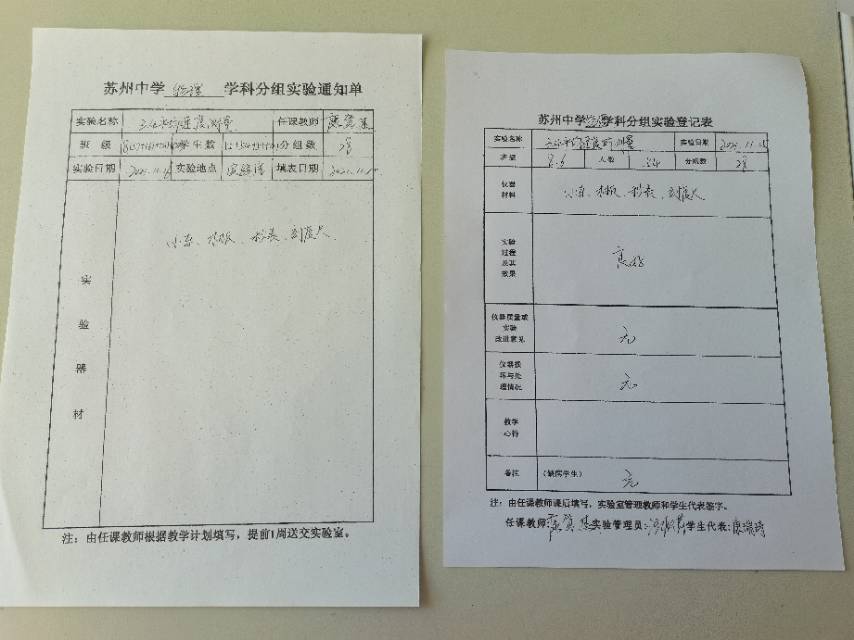 苏州中学 物理 学科分组实验通知单
实验名称 平均速度测量 任课教师
班 级 学生数 分组数 28
实验日期 2021.11.15 实验地点 实验室 填表日期 2021.11.
小车、木板、秒表、刻度尺
实
验
器
材
注：由任课教师根据教学计划填写，提前1周送交实验室。
苏州中学物理学科分组实验登记表
实验名称 平均速度的测量 实验日期 2021.11.15
班级 8.6 人数 54 分组数 28
仪器
材料
小车、木板、秒表、刻度尺
实验
过程
及其
效果
良好
仪器质量或
实验
改进意见
无
仪器损
坏与处
理情况
无
教学
心得
备注 (缺席学生) 无
注：由任课教师课后填写，实验室管理教师和学生代表签字。
任课教师: 实验管理员: 学生代表: